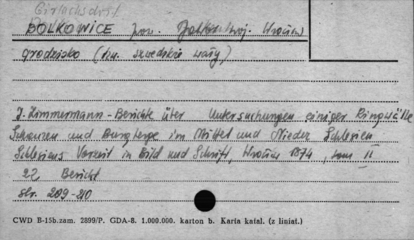 Girlachsdorf
BOLKOWICE pow. Jawor woj. Wrocław
grodzisko (tzw. szwedzkie wały)
J. Zimmermann - Berichte über Untersuchungen einiger Ringwälle
Schanzen und Burgberge im Mittel und Nieder Schlesien
Schlesiens Vorzeit in Bild und Schrift, Wrocław 1874, tom II
22 Bericht
str. 209-210
CWD B-15b.zam. 2899/P. GDA-8. 1.000.000. karton b. Karta katal. (z liniat.)